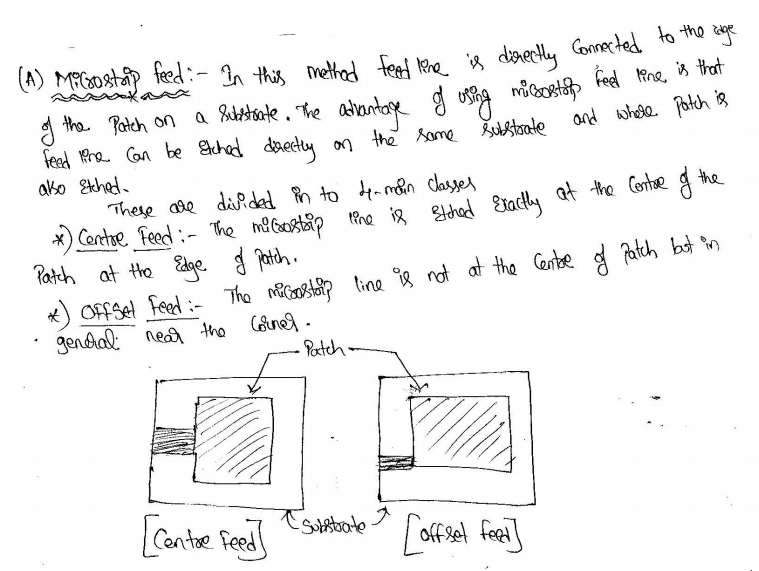 (A) Microstrip feed :- In this method feed line is directly Connected to the edge
of the Patch on a Substrate. The advantage of using microstrip feed line is that
feed line Can be Etched directly on the same substrate and where patch is
also Etched.
These are divided in to 4-main classes
*) Centre Feed :- The microstrip line is Etched Exactly at the Centre of the
Patch at the Edge of patch.
*) OFFSet Feed :- The microstrip line is not at the Centre of Patch but in
general near the Corner.
Patch
Substrate
[Centre Feed]
[offset feed]